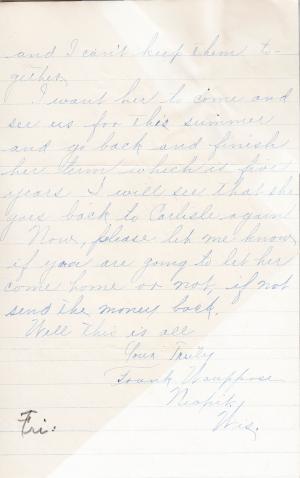 and I can't keep them to-
gether.
I want her to come and
see us for this summer
and go back and finish
her term which is five
years I will see that she
goes back to Carlisle again
Now, please let me know
if you are going to let her
come home or not, if not
send the money back.
Well this is all
Your Truly
Frank Wauppose
Neopit,
Wis.
Fri: